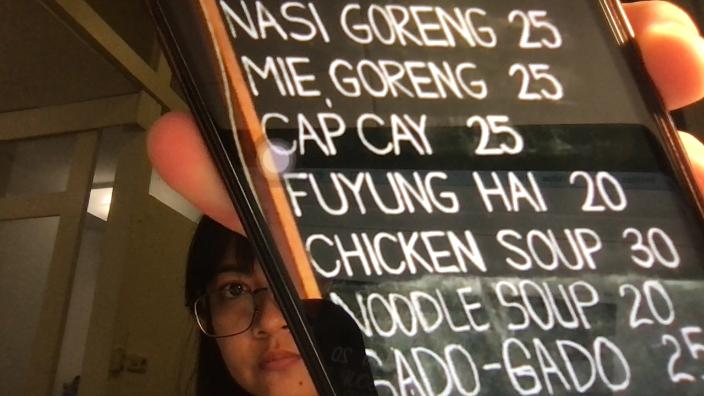 NASI GORENG 25
MIE GORENG 25
CAP CAY 25
FUYUNG HAI 20
CHICKEN SOUP 30
NOODLE SOUP 20
GADO-GADO 25